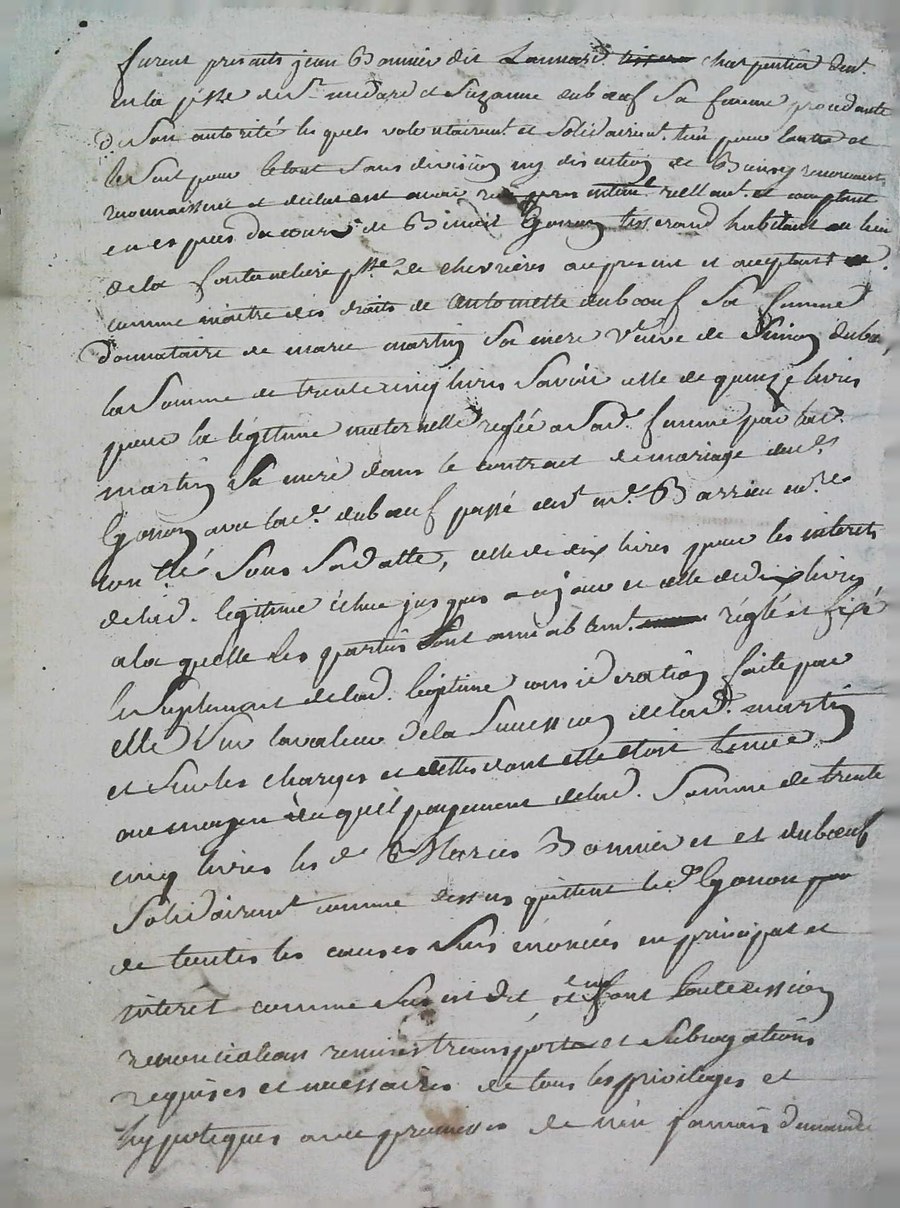 furent presents jean Bonnier dit Lamard charpentier demt.
en la psse de St medard et Suzanne duboeuf Sa femme procedante
de Son autorité les quels volontairemt et Solidairemt lun pour lautre et
le Seul pour le tout Sans division ny discution de Biens y renoncant
reconnaissent et declarent avoir reellemt. et comptant
en espèces du cours de Benoit Goron tisserand habitant au lieu
de la fontaneliere psse de chevrières cy present et acceptant
comme maitre des droits de antoinette duboeuf Sa femme
donnataire de marie martin Sa mere veuve de Simon duboeuf,
la Somme de trente cinq livres Savoir celle de quinze livres
pour la légitime maternelle reglée a Sad. femme par lad.
martin Sa mere dans le contrat de mariage dud.
Goron avec lad. duboeuf passé devt me. Barrieu nre
controllé Sous Sa datte, celle de dix livres pour les interets
de lad. légitime échue jusques a ce jour et celle de dix livres
a la quelle les parties Sont amiablemt. réglé et fixé
le Suplement de lad. légitime consideration faite par
elle Sur la valeur de la Succession de lad. martin
et Sur les charges et dettes dont elle etoit tenue
au moyen du quel payement de lad. Somme de trente
cinq livres les d. mariés Bonnier et et duboeuf
Solidairemt comme dessus quittent led. Goron
de toutes les causes Sus énoncées en principal et
interet comme Sus est dit, et en font toute cession
renonciation remises transports et Subrogations
requises et necessaires de tous les privileges et
hypoteques avec promesses de n'en jamais demander